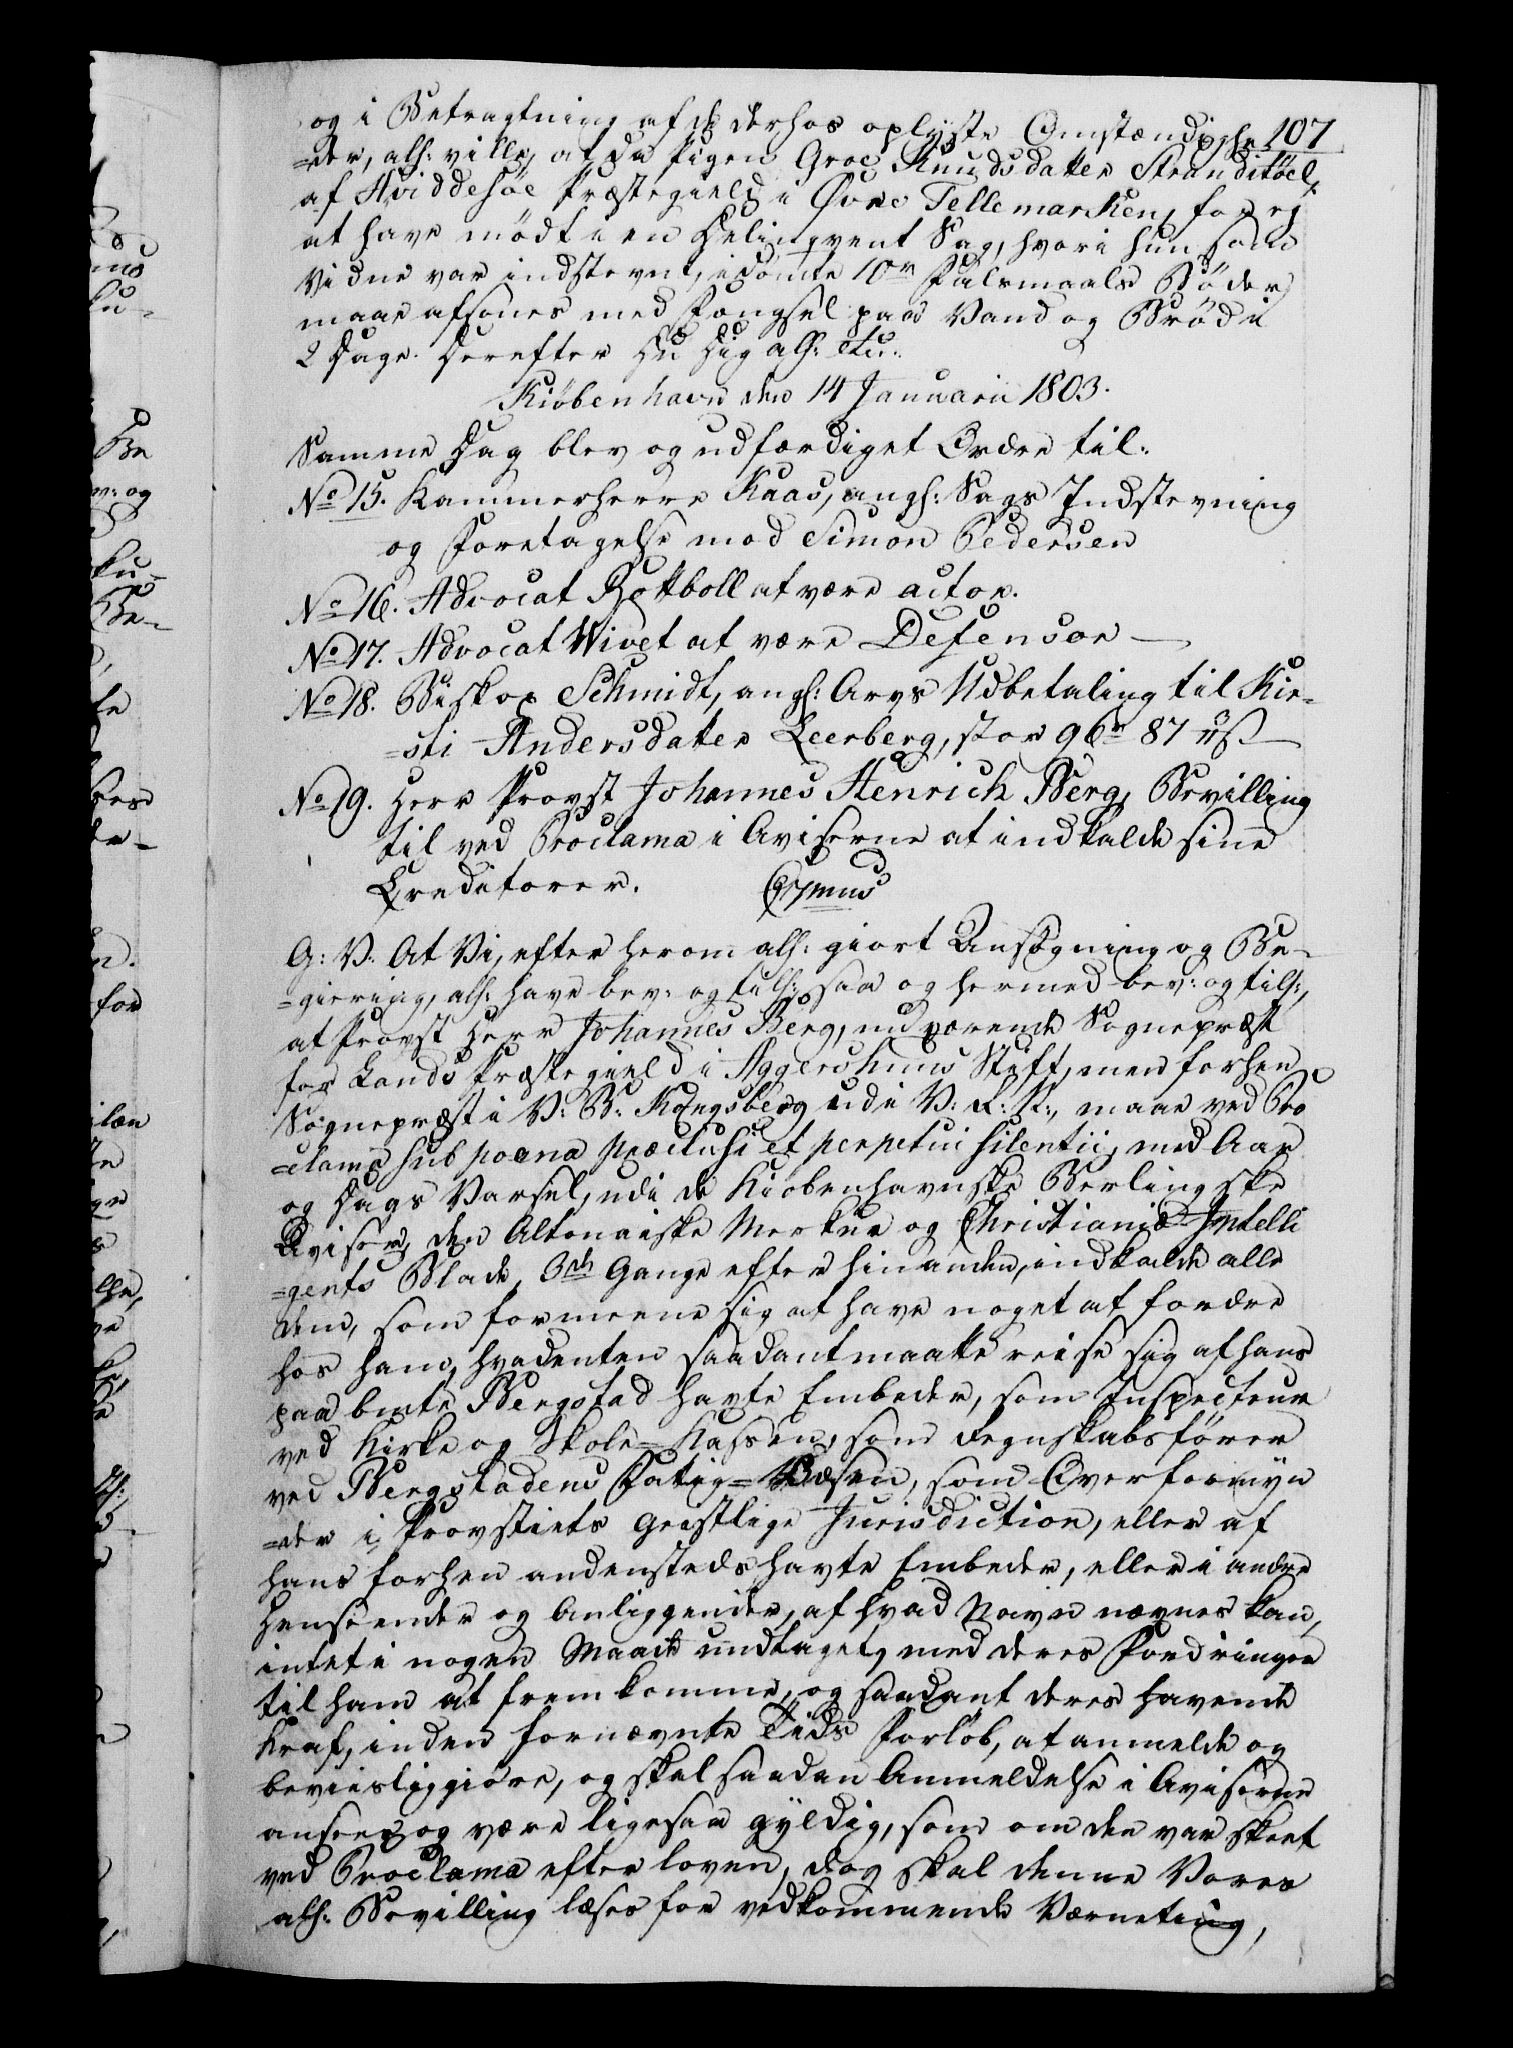 107
og i Betragtning af de derhos oplyste Omstændighe
=der, alh: ville, at da Pigen Groe Knudsdatter Stranditöel,
af Hviddesöe Præstegield i Øvre Tellemarken, for ej
at have mödt i en Delinqvent Sag, hvori hun som
Vidne var indstevnt, idömte 10 r Falsmaals Böder
maae afsones med Fængsel paa Vand og Bröd i
2 Dage. Derefter Du Dig alh: etc:
Kiöbenhavn den 14 Januarii 1803.
Samme Dag blev og udfærdiget Ordre til:
No 15. Kammerherre Kaas, angl: Sags Indstevning
og Foretagelse mod Simon Pedersen
No 16. Advocat Rottboll at være actor.
No 17. Advocat Wivet at være Defensor
No 18. Biskop Schmidt, angl: Arvs Udbetaling til Kir=
=sti Andersdatter Leerberg, stor 96 r 87 ß
No 19. Herr Provst Johannes Henrich Berg, Bevilling
til ved Proclama i Aviserne at indkalde sine
Creditorer.
G: V. At Vi, efter herom alh: giort Ansögning og Be=
=giering, alh: have bev: og tilh: saa og hermed bev: og tilh:,
at Provst Herr Johannes Berg, nuværende Sognepræst
for Lands Præstegield i Aggershuus Stift, men forhen
Sognepræst i V: B: Kongsberg udi V: R: N:, maae ved Pro
=clama sub poena præclusi et perpetui silentii, med Aar
og Dags Varsel, udi de Kiöbenhavnske Berlingske
Aviser, den Altonaiske Merkur og Christianiæ Intelli
=gents Blade, 3de Gange efter hinanden, indkalde alle
dem, som formeene sig at have noget at fordre
hos ham, hvadenten saadant maatte reise sig af hans
paa bmte Bergstad havte Embeder, som Inspecteur
ved Kirke og Skole=Kassen, som Regnskabsförer
ved Bergstadens Fattig=Væsen, som Overformyn
=der i Provstiets Geistlige Jurisdiction, eller af
hans forhen andensteds havte Embeder, eller i andre
Henseender og Anliggender, af hvad Navn nævnes kan,
intet i nogen Maade undtaget, med deres Fordringer
til ham at fremkomme, og saadant deres havende
Kraf, inden fornævnte Tids Forlöb, at anmelde og
beviisliggiöre, og skal saadan Anmeldelse i Aviserne
ansees og være ligesaa gyldig, som om den var skeet
ved Proclama efter Loven, dog skal denne Vores
alh: Bevilling læses for vedkommende Værneting,